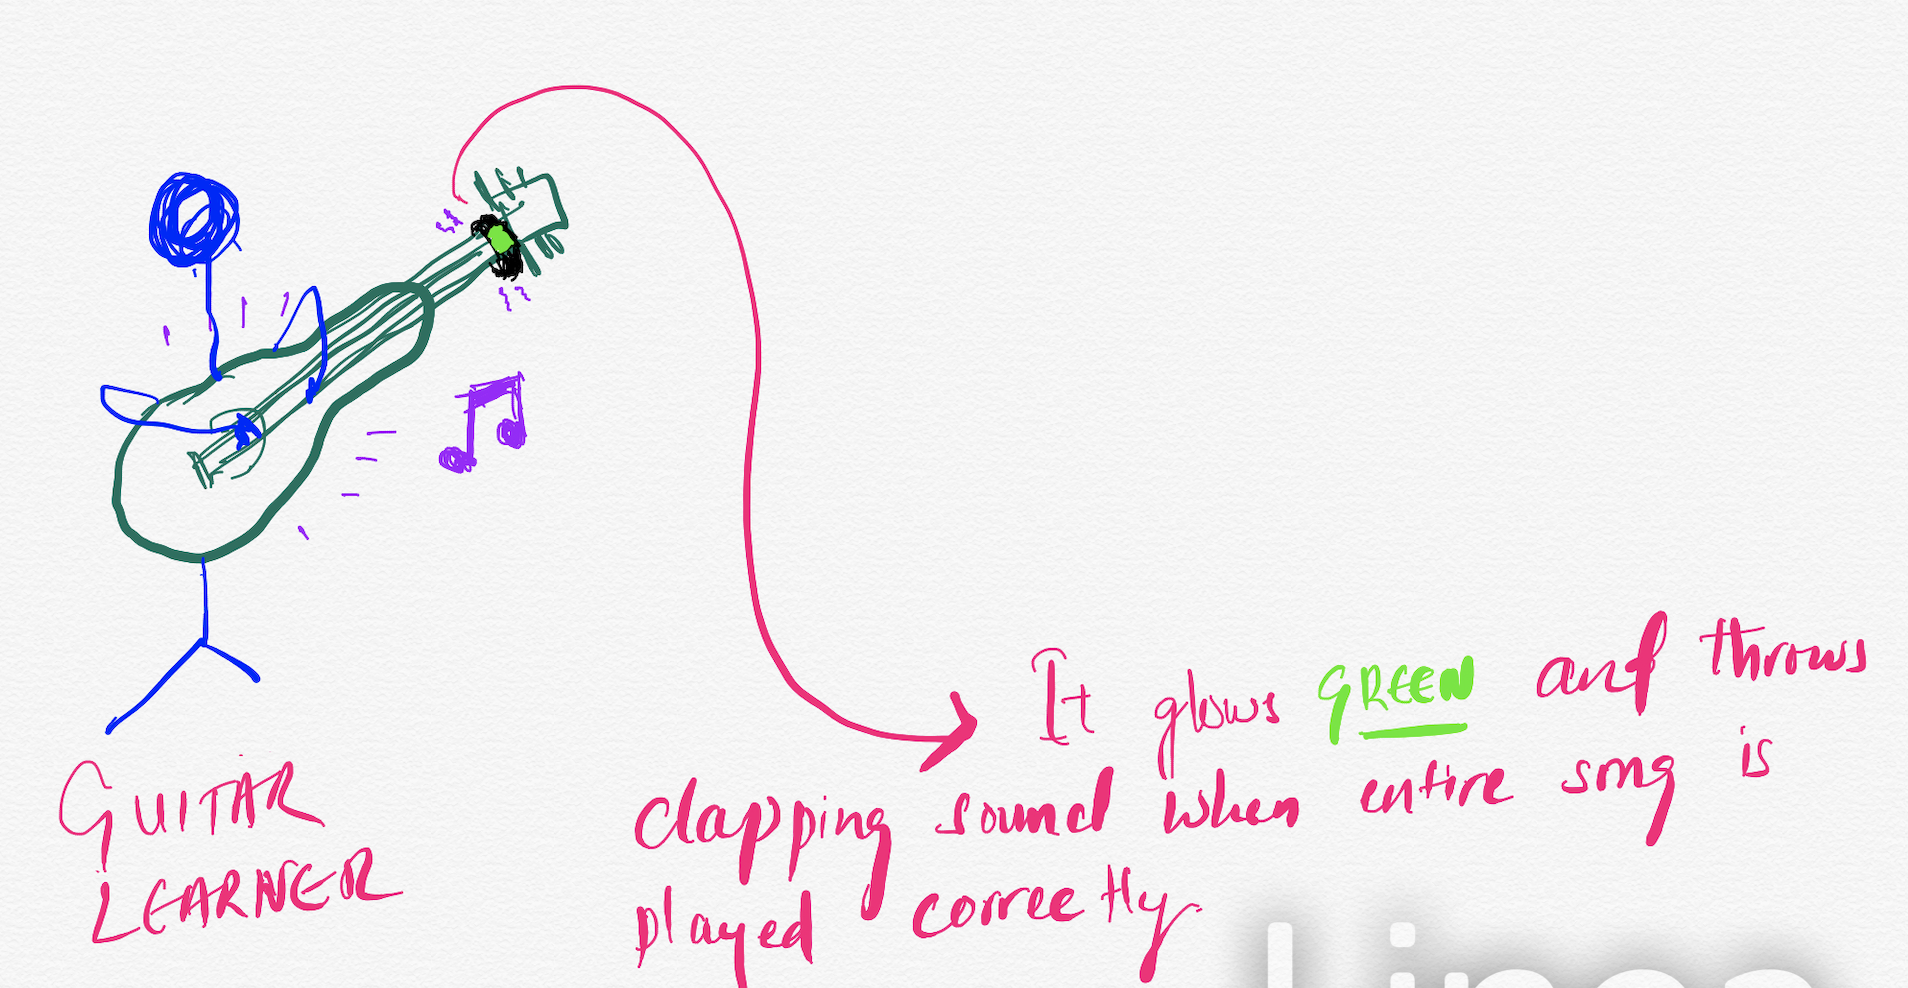 GUITAR
LEARNER
It glows GREEN and throws
clapping sound when entire song is
played correctly.